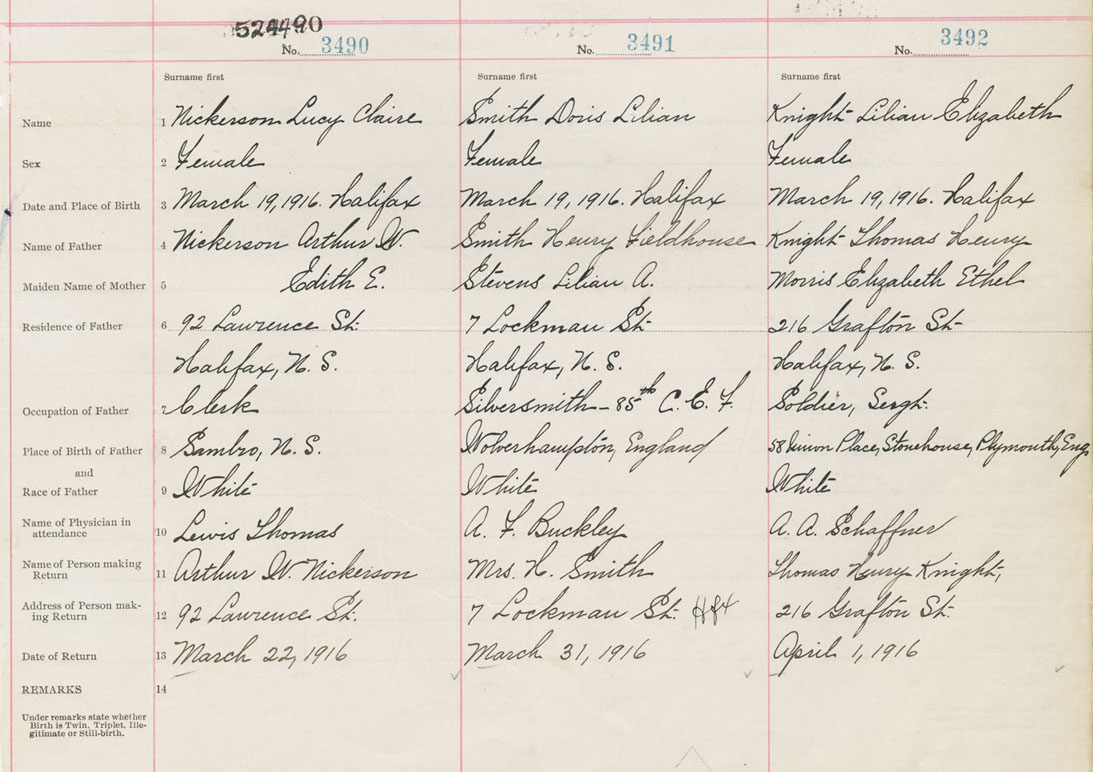 524490
No. 3490 No. 3491 No. 3492
Surname first Surname first Surname first
Name 1 Nickerson Lucy Claire Smith Doris Lilian Knight Lilian Elizabeth
Sex 2 Female Female Female
Date and Place of Birth 3 March 19, 1916. Halifax March 19, 1916. Halifax March 19, 1916. Halifax
Name of Father 4 Nickerson Arthur W. Smith Henry Fieldhouse Knight Thomas Henry
Maiden Name of Mother 5 Edith E. Stevens Lilian A. Morris Elizabeth Ethel
Residence of Father 6 92 Lawrence St. 7 Lockman St. 216 Grafton St.
Halifax, N. S. Halifax, N. S. Halifax, N. S.
Occupation of Father 7 Clerk Silversmith - 85th C. E. F. Soldier, Sergt.
Place of Birth of Father 8 Sambro, N. S. Wolverhampton, England 58 Union Place, Stonehouse, Plymouth, Eng
and
Race of Father 9 White White White
Name of Physician in
attendance 10 Lewis Thomas A. F. Buckley A. A. Schaffner
Name of Person making
Return 11 Arthur W. Nickerson Mrs. H. Smith Thomas Henry Knight,
Address of Person mak-
ing Return 12 92 Lawrence St. 7 Lockman St. Hfx 216 Grafton St.
Date of Return 13 March 22, 1916 March 31, 1916 April 1, 1916
REMARKS 14
Under remarks state whether
Birth is Twin, Triplet, Ille-
gitimate or Still-birth.